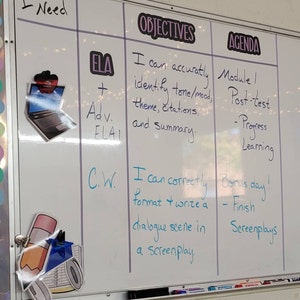 I Need
OBJECTIVES
AGENDA
ELA
+
Adv.
ELA!
I can accuratly
identify tone/mood,
theme, citations,
and summary.
Module 1
Post-Test
- Progress
Learning
C.W.
I can correctly
format & write a
dialogue scene in
a screenplay
Bonus day!
- Finish
Screenplays